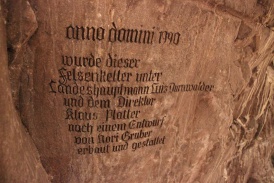 anno domini 1990
wurde dieser
Felsenkeller unter
Landeshauptmann Luis Durnwalder
und dem Direktor
Klaus Platter
nach einem Entwurf
von Kori Gruber
erbaut und gestaltet